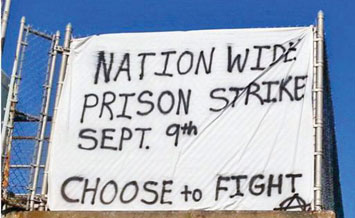 NATION WIDE
PRISON STRIKE
SEPT. 9th
CHOOSE to FIGHT